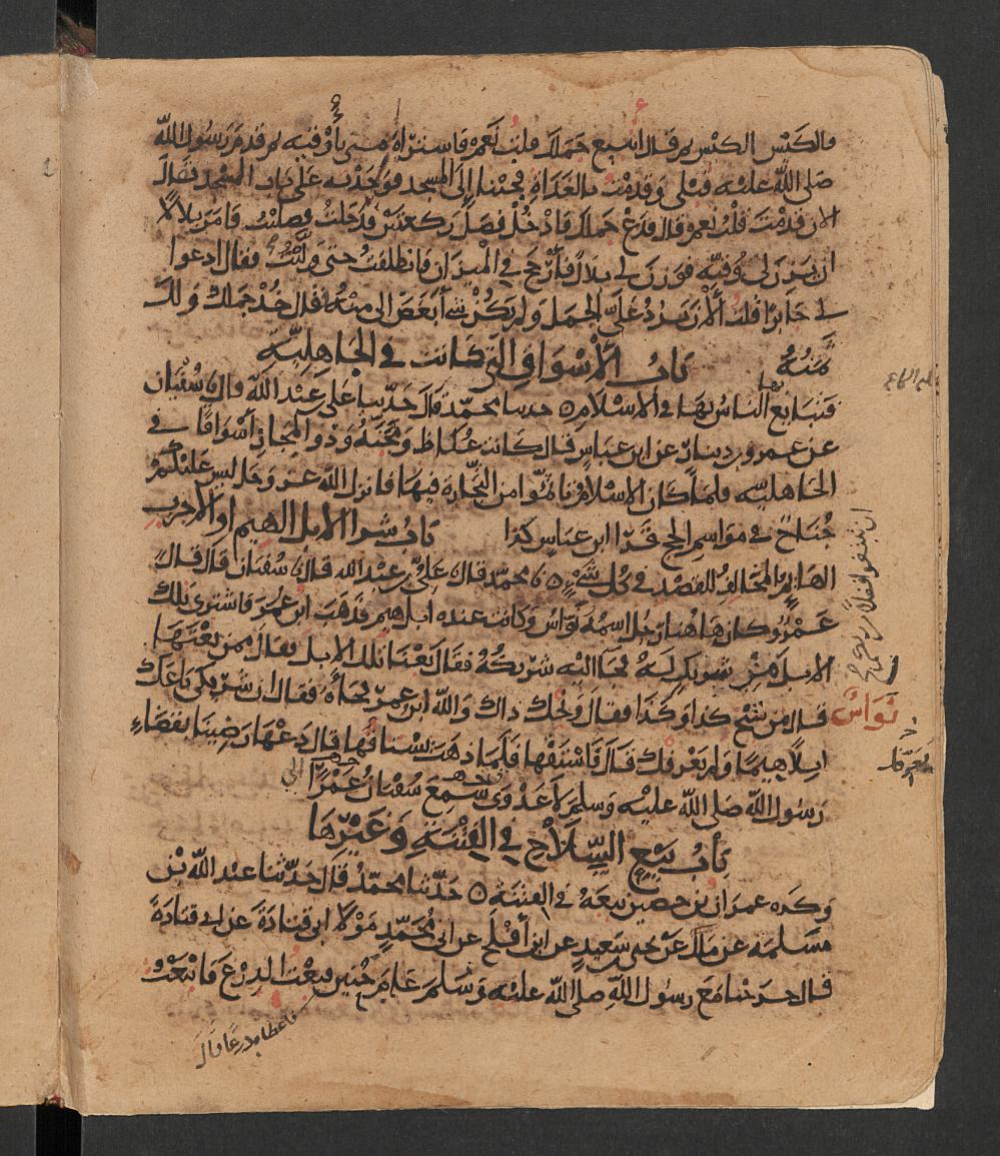 فالكيس الكيس ثم قال اتبيع جملك قلت نعم فاشتراه مني بأوقية ثم قدم رسول الله
صلى الله عليه قبلي وقدمت بالغداة فجئنا إلى المسجد فوجدته على باب المسجد فقال
الان قدمت قلت نعم قال فدع جملك فادخل فصل ركعتين فدخلت فصليت فامر بلالا
ان يزن لي وقية فوزن لي بلال فأرجح في الميزان فانطلقت حتى وليت فقال ادعوا
لي جابرا قلت الان يرد علي الجمل ولم يكن شيء أبغض الي منه قال خذ جملك ولك
ثمنه باب الأسواق التي كانت في الجاهلية
فتبايع الناس بها في الاسلام ٥ حدثنا محمد قال حدثنا علي بن عبد الله قال سفيان
عن عمرو بن دينار عن ابن عباس قال كانت عكاظ ومجنة وذو المجاز أسواقا في
الجاهلية فلما كان الاسلام تأثموا من التجارة فيها فانزل الله عز وجل ليس عليكم
جناح في مواسم الحج قرأ ابن عباس كذا باب شرا الابل الهيم او الاجرب
الهايم المخالف للقصد في كل شيء ٥ محمد قال علي بن عبد الله قال سفيان قال قال
عمرو كان هاهنا رجل اسمه نواس وكانت عنده ابل هيم فذهب ابن عمر فاشترى تلك
الابل من شريك له فجا اليه شريكه فقال بعنا تلك الابل فقال ممن بعتها
قال من شيخ كذا وكذا فقال ويحك ذاك والله ابن عمر فجاءه فقال ان شريكي باعك
نواس
ابلا هيما ولم يعرفك قال فاستقها فلما ذهب يستاقها قال دعها رضينا بقضاء
رسول الله صلى الله عليه وسلم لا عدوى سمع سفيان عمرا
باب بيع السلاح في الفتنة وغيرها
وكره عمران بن حصين بيعه في الفتنة ٥ حدثنا محمد قال حدثنا عبد الله بن
مسلمة عن مالك عن يحيى بن سعيد عن ابن أفلح عن ابي محمد مولا ابي قتادة عن ابي قتادة
قال خرجنا مع رسول الله صلى الله عليه وسلم عام حنين فبعت الدرع فابتعت
فاعطاه درعا قال